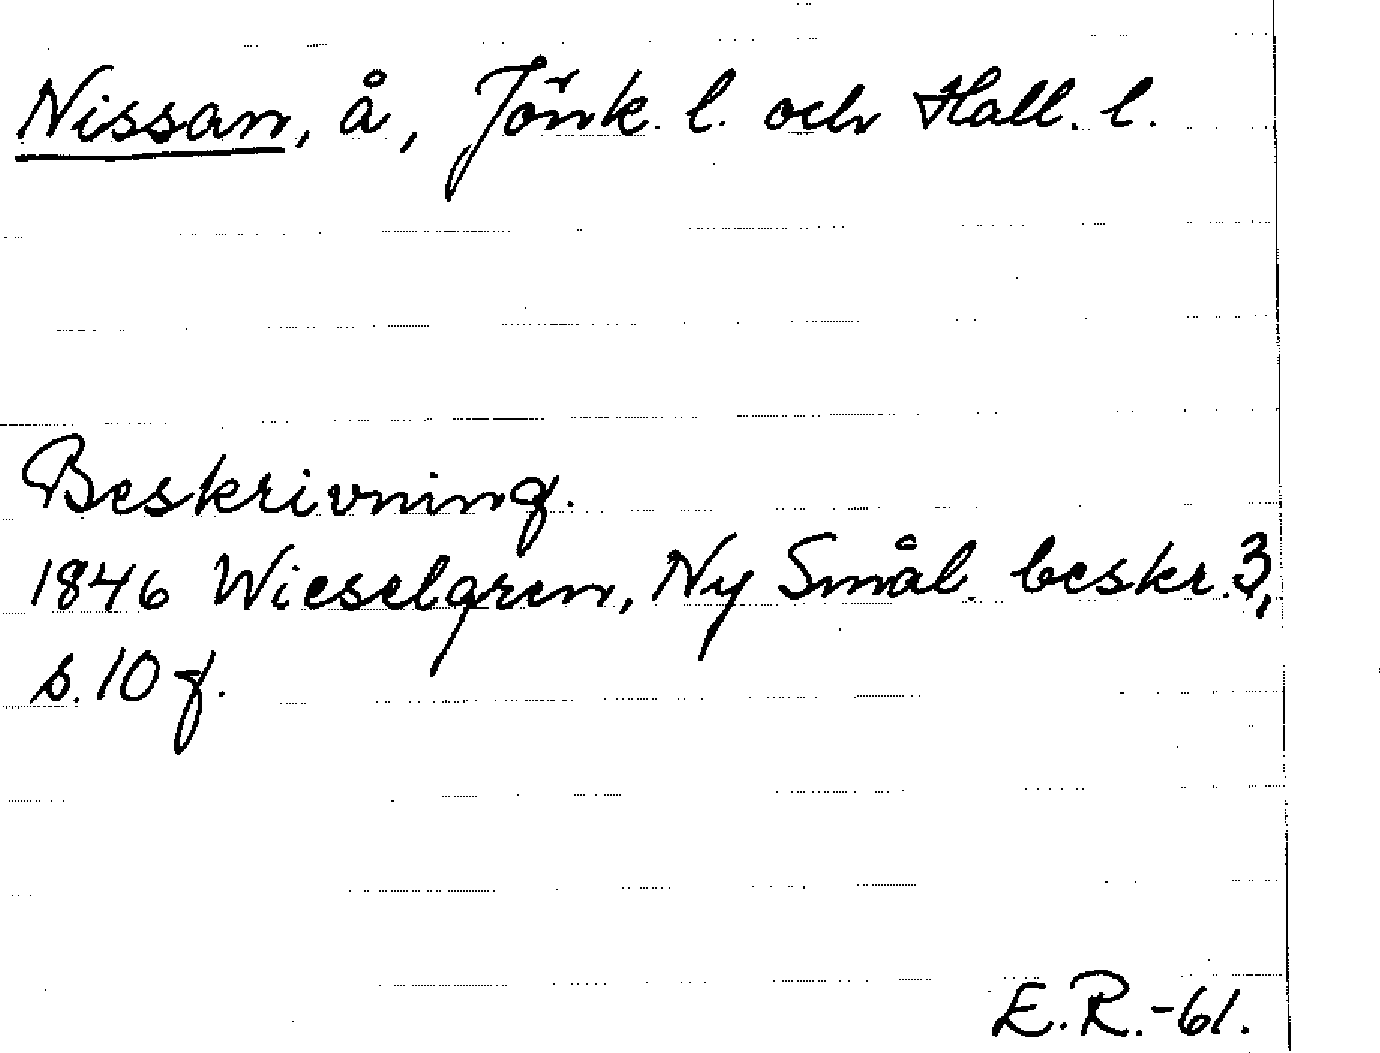 Nissan, å, Jönk. l. och Hall. l.
Beskrivning.
1846 Wieselgren, Ny Smål. beskr. 3,
s. 10 f.
E.R.-61.